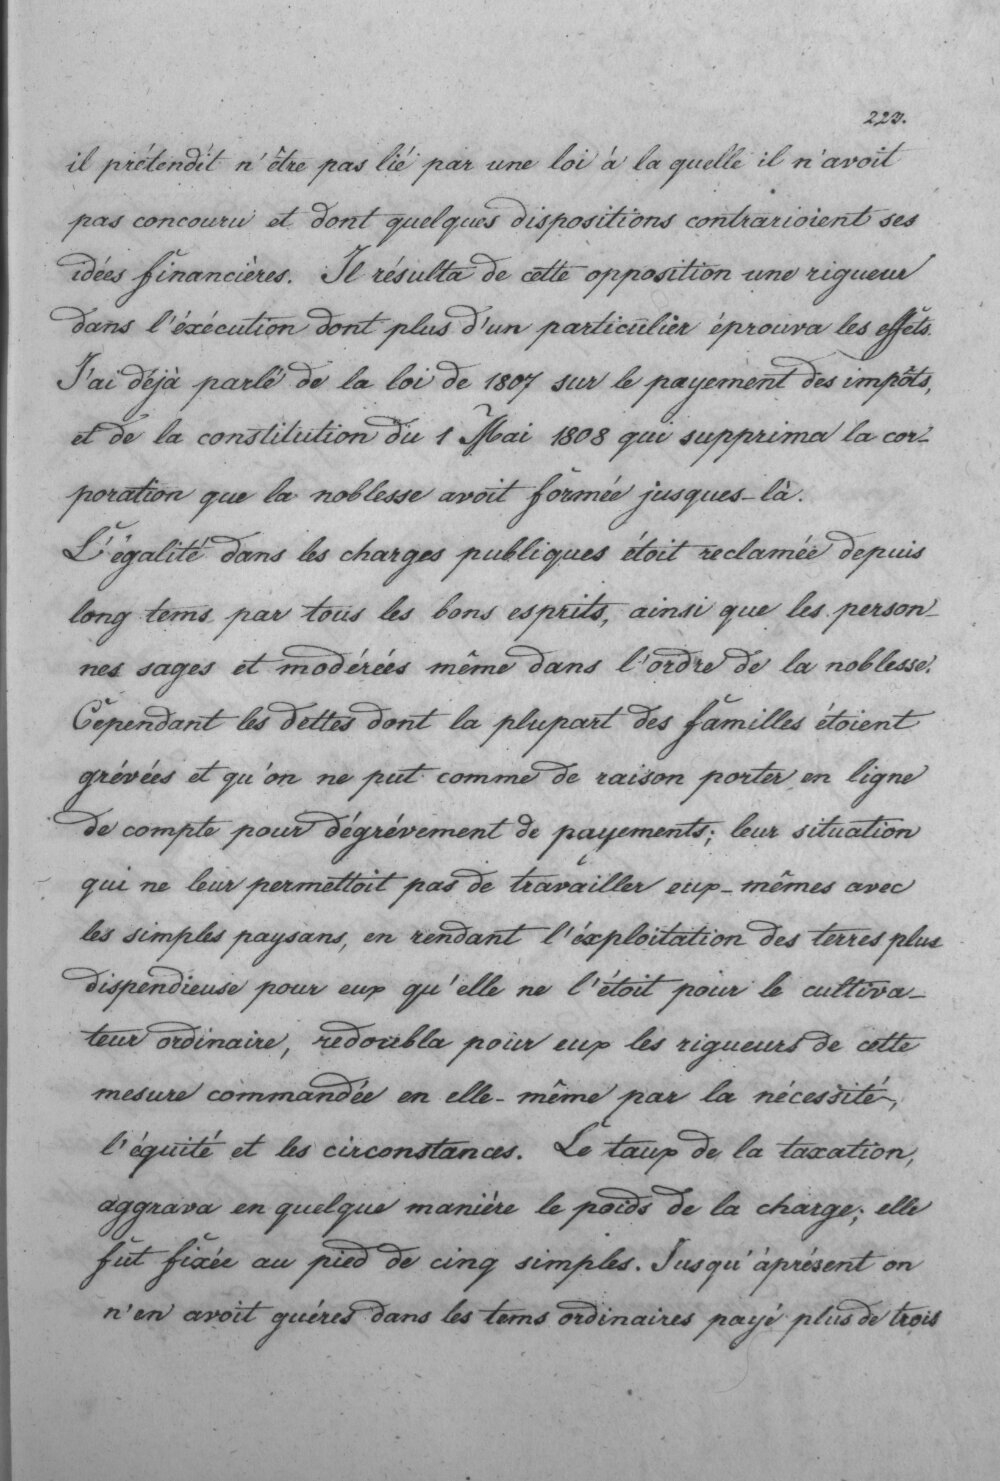 223.
il prétendit n'être pas lié par une loi à la quelle il n'avoit
pas concouru et dont quelques dispositions contrarioient ses
idées financières. Il résulta de cette opposition une rigueur
dans l'éxécution dont plus d'un particulier éprouva les effets.
J'ai déjà parlé de la loi de 1807 sur le payement des impôts,
et de la constitution du 1 Mai 1808 qui supprima la cor-
poration que la noblesse avoit formée jusques-là.
L'égalité dans les charges publiques étoit reclamée depuis
long tems par tous les bons esprits, ainsi que les person-
nes sages et modérées même dans l'ordre de la noblesse.
Cependant les dettes dont la plupart des familles étoient
grévées et qu'on ne put comme de raison porter en ligne
de compte pour dégrévement de payements; leur situation
qui ne leur permettoit pas de travailler eux-mêmes avec
les simples paysans, en rendant l'éxploitation des terres plus
dispendieuse pour eux qu'elle ne l'étoit pour le cultiva-
teur ordinaire, redoubla pour eux les rigueurs de cette
mesure commandée en elle-même par la nécessité,
l'équité et les circonstances. Le taux de la taxation,
aggrava en quelque manière le poids de la charge; elle
fut fixée au pied de cinq simples. Jusqu'àprésent on
n'en avoit guéres dans les tems ordinaires payé plus de trois